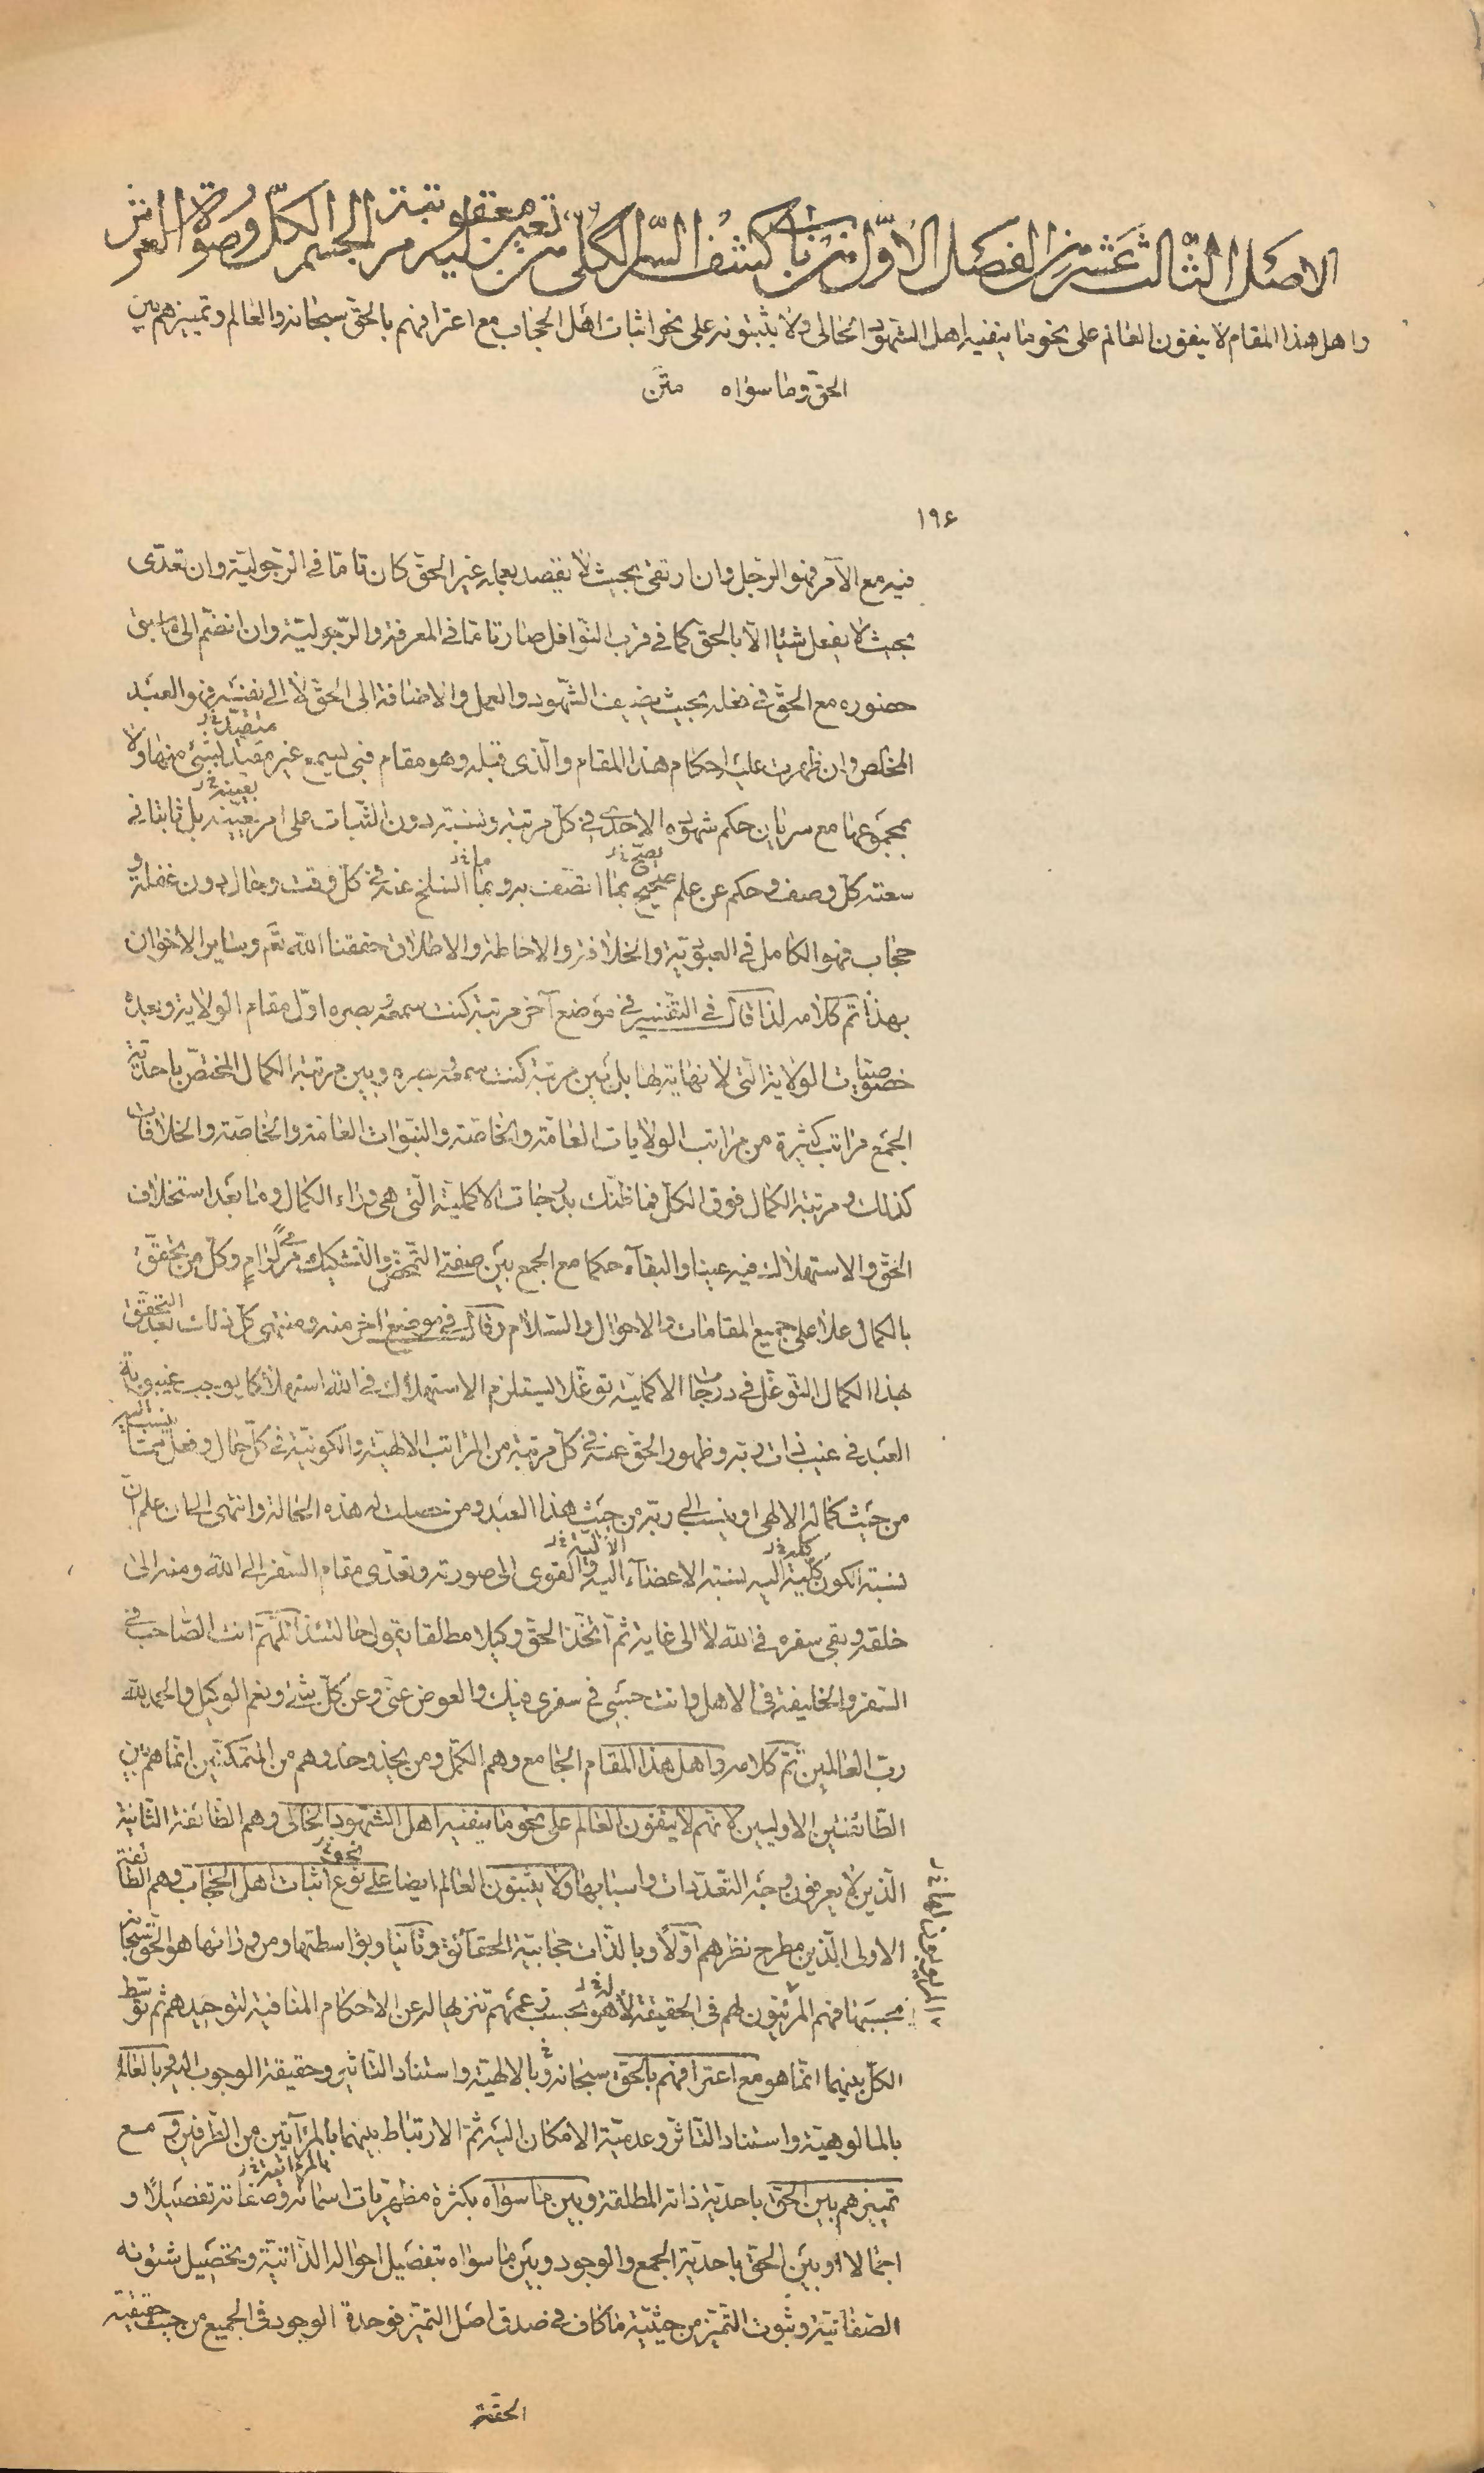 الاصل الثالث عشر من الفصل الاول من باب كشف السر الكلى من تعين مرتبة معقولية الجسم الكل وصورة العرش
واهل هذا المقام لا ينفون العالم على نحو ما ينفيه اهل الشهود الحالى ولا يثبتونه على نحو اثبات اهل الحجاب مع اعترافهم بالحق سبحانه والعالم وتمييزهم بين
الحق وما سواه متن
١٩۶
فيه مع الآمر فهو الرجل وان ارتقى بحيث لا يقصد بعمله غير الحق كان تاما فى الرجولية وان تعدى
بحيث لا يفعل شيئا الا بالحق كما فى قرب النوافل صار تاما فى المعرفة والرجولية وان انضم الى ما سبق
حضوره مع الحق فى فعله بحيث يضيف الشهود والعمل والاضافة الى الحق لا الى نفسه فهو العبد
المخلص وان ظهرت عليه احكام هذا المقام والذى قبله وهو مقام فبى يسمع غير مقيد بشئ منها ولا
بمجموعها مع سريان حكم شهوده الاحدى فى كل مرتبة ونسبة دون الثبات على امر بعينه بل ثابتا فى
سعته كل وصف وحكم عن علم صحيح بما اتصف به وبما انسلخ عنه فى كل وقت وحال دون غفلة و
حجاب فهو الكامل فى العبودية والخلافة والاحاطة والاطلاق حققنا الله تعم وساير الاخوان
بهذا تم كلامه لذا قال فى التفسير فى موضع آخر مرتبة كنت سمعه وبصره اول مقام الولاية وبعدها
خصوصيات الولاية التى لا نهاية لها بل بين مرتبة كنت سمعه وبصره وبين مرتبة الكمال المختص باحدية
الجمع مراتب كثيرة من مراتب الولايات العامة والخاصة والنبوات العامة والخاصة والخلافات
كذلك ومرتبة الكمال فوق الكل فما ظنك بدرجات الاكملية التى هى وراء الكمال وما بعد استخلاف
الحق والاستهلاك فيه عينا والبقاء حكما مع الجمع بين صفتى التمحض والتشكيك مرمى لرام وكل من تحقق
بالكمال علا على جميع المقامات والاحوال والسلام وقال فى موضع آخر منه ومنتهى كل ذلك بعد التحقق
بهذا الكمال التوغل فى درجات الاكملية توغلا يستلزم الاستهلاك فى الله استهلاكا يوجب غيبوبة
العبد فى غيب ذات ربه وظهور الحق عنه فى كل مرتبة من المراتب الالهية والكونية فى كل حال وفعل مما ينسب اليه
من حيث كماله الالهى او ينسب الى ربه من حيث هذا العبد ومن حصلت له هذه الحالة وانتهى الى ان علم ان
نسبة الكون كليه اليه نسبة الاعضاء الآلية والقوى الى صورته وتعدى مقام السفر الى الله ومنه الى
خلقه وبقى سفره فى الله لا الى غاية ثم اتخذ الحق وكيلا مطلقا يقول حالتئذ اللهم انت الصاحب فى
السفر والخليفة فى الاهل وانت حسبى فى سفرى فيك والعوض عنى وعن كل شئ ونعم الوكيل والحمد لله
رب العالمين تم كلامه واهل هذا المقام الجامع وهم الكمل ومن يحذو حذوهم من المتمكنين انما هم بين
الطائفتين الاوليين لانهم لا ينفون العالم على نحو ما ينفيه اهل الشهود الحالى وهم الطائفة الثانية
الذين لا يعرفون وجه التعددات واسبابها ولا يثبتون العالم ايضا على نوع اثبات اهل الحجاب وهم الطائفة
الاولى الذين مطرح نظرهم اولا وبالذات حجابية الحقائق وثانيا وبواسطتها ومن ورائها هو الحق سبحانه
بحسبها فهم المرئيون لهم فى الحقيقة لا هو بحسب زعمهم تنزيها له عن الاحكام المنافية لتوحيدهم ثم توسط
الكل بينهما انما هو مع اعترافهم بالحق سبحانه وبالالهية واستناد التاثير وحقيقة الوجوب اليه وبالعالم
بالمالوهية واستناد التاثر وعدمية الامكان اليه ثم الارتباط بينهما بالمرآتية من الطرفين ومع
تمييزهم بين الحق باحدية ذاته المطلقة وبين ما سواه بكثرة مظهريات اسمائه وصفاته تفصيلا و
اجمالا او بين الحق باحدية الجمع والوجود وبين ما سواه بتفصيل احواله الذاتية وبتحصيل شئونه
الصفاتية وثبوت التميز من حيثية ما كاف فى صدق اصل التميز فوحدة الوجود فى الجميع من حيث حقيقته
الحقة